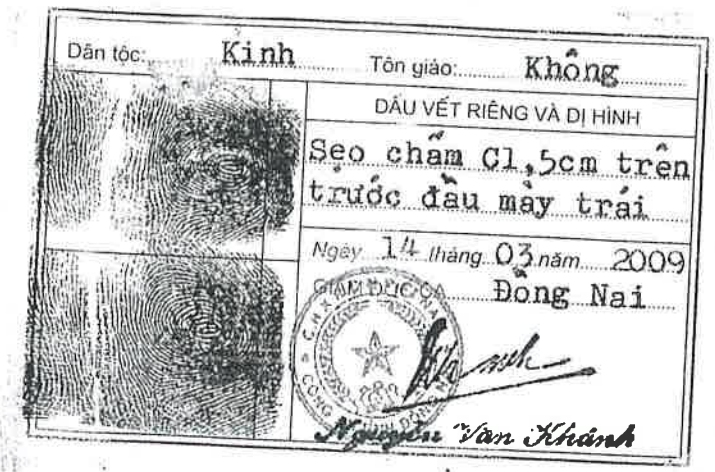 Dân tộc: Kinh Tôn giáo: Không
DẤU VẾT RIÊNG VÀ DỊ HÌNH
Sẹo chấm C1,5cm trên
trước đầu mày trái
Ngày 14 tháng 03 năm 2009
GIÁM ĐỐC CA Đồng Nai
Nguyễn Văn Khánh